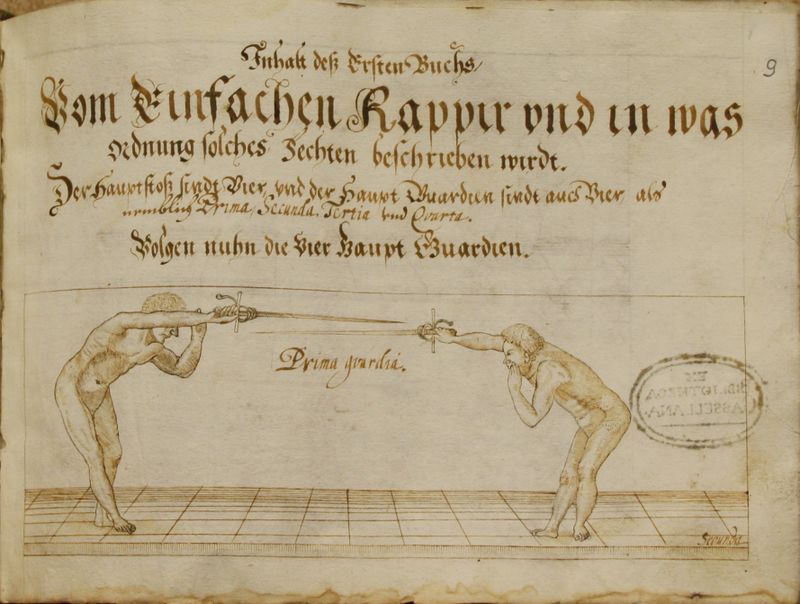 Inhalt deß Ersten Buchs/
9
Vom Einfachen Rappir vnd in was
ordnung solches Fechten beschrieben wirdt.
Der Hauptstoß sindt Vier, vnd der Haupt Guardien sindt auch Vier als
nemblich Prima, Secunda, Tertia vnd Quarta.
Volgen nuhn die Vier Haupt Guardien.
Prima guardia.
BIBLIOTHECA
CASSELLANA
Secunda